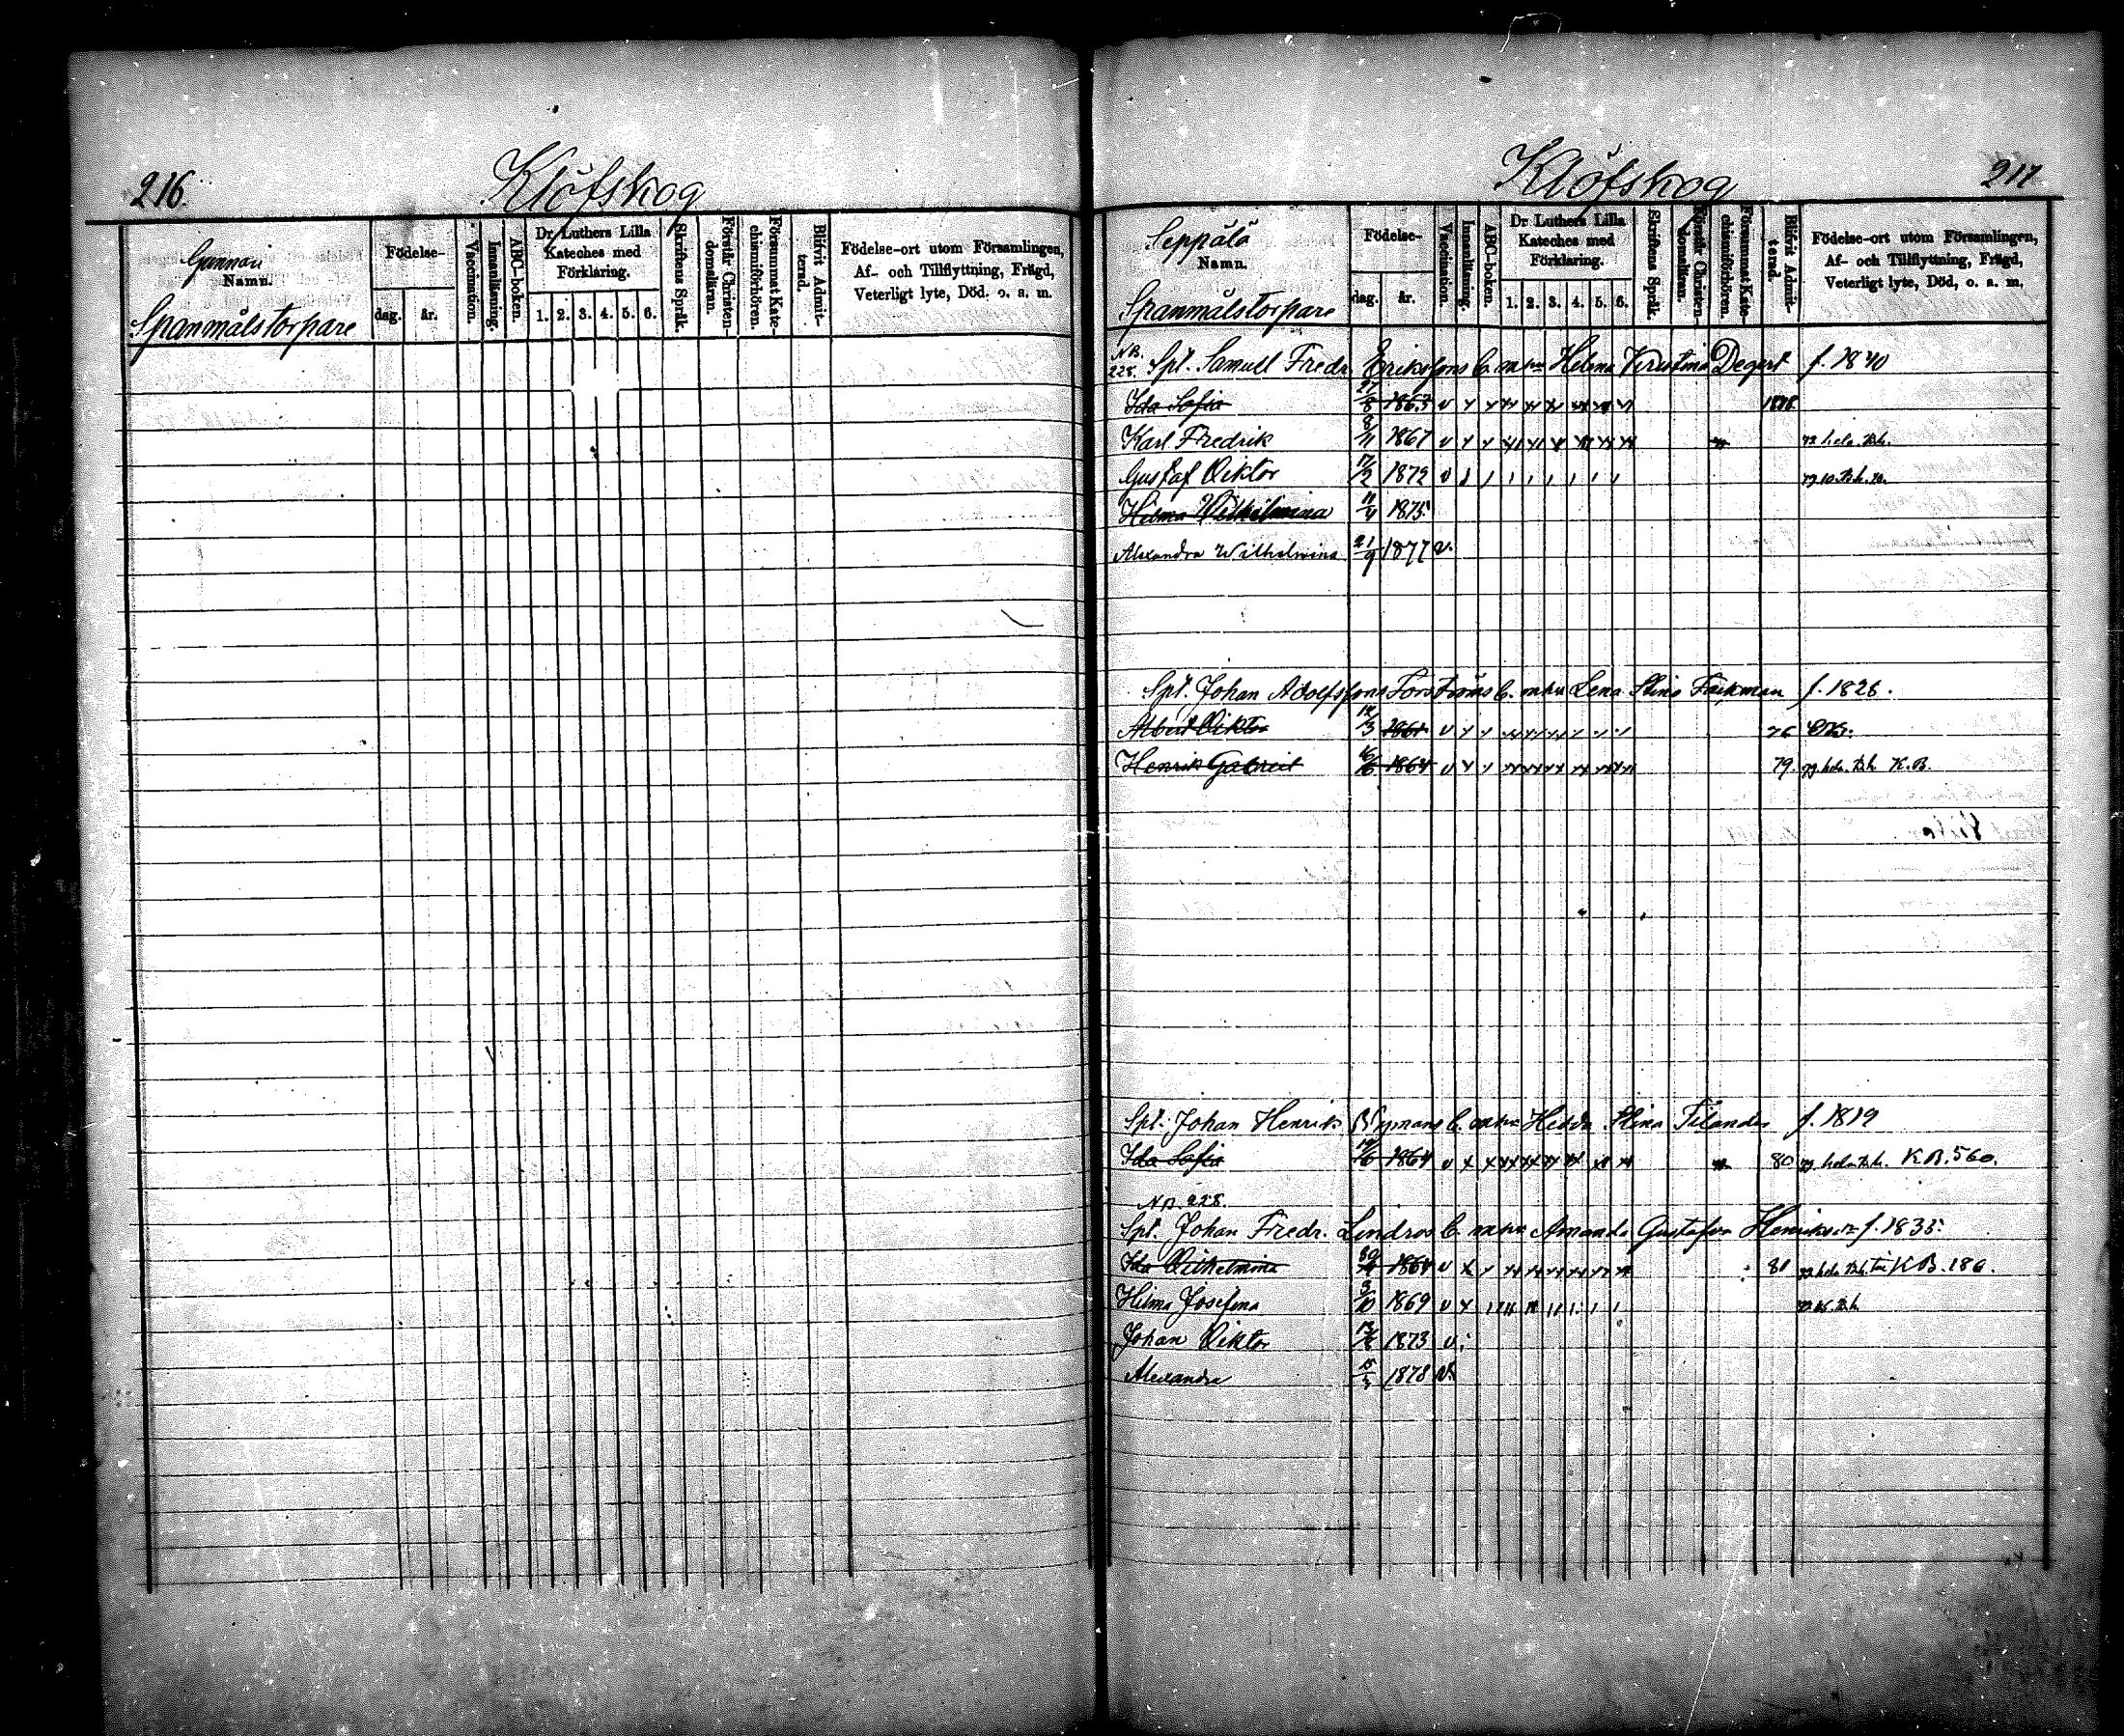 216.
Klöfskog
Gunnari
Namn.
Spanmålstorpare
Födelse-
dag.
år.
Vaccination.
Innanläsning.
ABC-boken.
Dr Luthers Lilla
Kateches med
Förklaring.
1. 2. 3. 4. 5. 6.
Skriftens Språk.
Förstår Christen-
domsläran.
Försummat Kate-
chismiförhören.
Blifvit Admit-
terad.
Födelse-ort utom Församlingen,
Af- och Tillflyttning, Frägd,
Veterligt lyte, Död. o. a. m.
Klöfskog
217
Seppälä
Namn.
Spanmålstorpare
Födelse-
dag.
år.
Vaccination.
Innanläsning.
ABC-boken.
Dr Luthers Lilla
Kateches med
Förklaring.
1. 2. 3. 4. 5. 6.
Skriftens Språk.
Förstår Christen-
domsläran.
Försummat Kate-
chismiförhören.
Blifvit Admit-
terad.
Födelse-ort utom Församlingen,
Af- och Tillflyttning, Frägd,
Veterligt lyte, Död, o. a. m.
NB.
228. Spt. Samuel Fredr. Erikssons b. m. Helena Kristina Degert f. 1840
Ida Sofia 27/8 1863 v 1878
Karl Fredrik 8/11 1867 v
Gustaf Viktor 17/2 1872 v
Helma Wilhelmina 11/4 1875
Alexandra Wilhelmina 21/9 1877 v.
Spt. Johan Adolfssons Forsströms b. m. Lena Stina Fackman f. 1826.
Albert Viktor 1861 v 76
Henrik Gabriel 1864 v 79. K.B.
Spt. Johan Henrik Nymans b. m. Hedda Stina Tilander f. 1819
Ida Sofia 1864 v 80 K.B. 560.
NB 228.
Spt. Johan Fredr. Lindros b. m. Amanda Gustafva f. 1835.
Ida Vilhelmina 1864 v 81 K.B. 186.
Hilma Josefina 3/10 1869 v
Johan Viktor 1873 v.
Alexandra 1878 v.